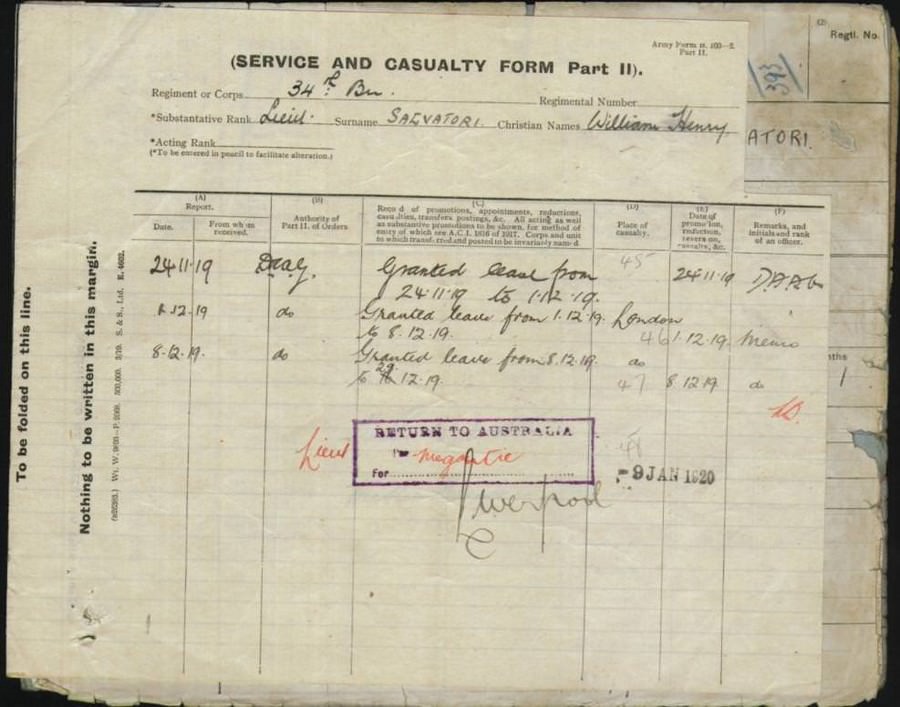 Army Form B. 103—2.
Part II.
(SERVICE AND CASUALTY FORM Part II).
Regiment or Corps 34th Bn. Regimental Number
*Substantive Rank Lieut. Surname SALVATORI. Christian Names William Henry
*Acting Rank
(*To be entered in pencil to facilitate alteration.)
(2)
Regtl. No.
393
ATORI.
(A)
Report.
Date.
From whom received.
(B)
Authority of
Part II. of Orders
(C)
Record of promotions, appointments, reductions,
casualties, transfers, postings, &c. All acting as well
as substantive promotions to be shown, for method of
entry of which see A.C.I. 1816 of 1917. Corps and unit
to which transferred and posted to be invariably named
(D)
Place of
casualty.
(E)
Date of
promotion,
reduction,
reversion,
casualty, &c.
(F)
Remarks, and
initials and rank
of an officer.
24.11.19 DAAG. Granted leave from 45 24.11.19 DAAG
24.11.19 to 1.12.19.
1.12.19 do Granted leave from 1.12.19. London
to 8.12.19. 46 1.12.19. Memo
8.12.19. do Granted leave from 8.12.19. do
to 29.12.19. 47 8.12.19. do
Lieut
RETURN TO AUSTRALIA
Per Megantic
For
Liverpool
48
-9 JAN 1920
nths
1
To be folded on this line.
Nothing to be written in this margin.